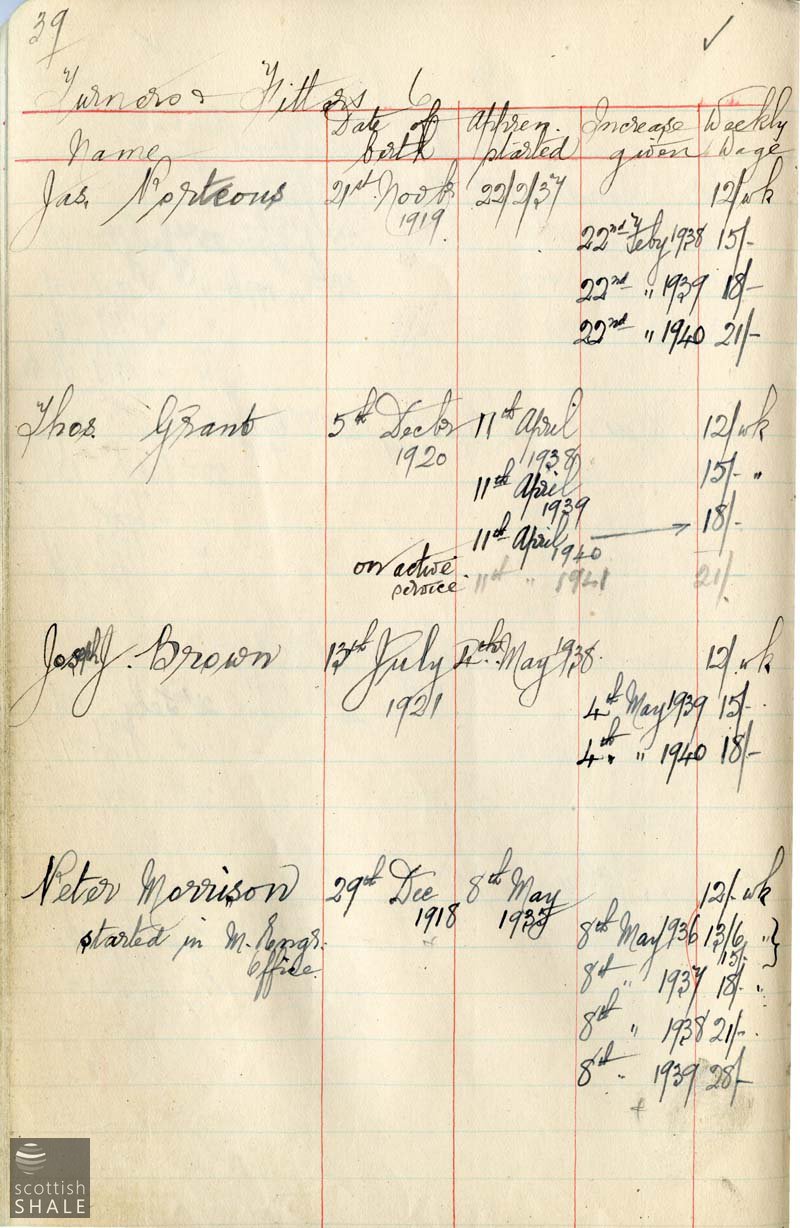 39 ✓
Turners & Fitters 6
Name Date of birth Appren. started Increase given Weekly Wage
Jas. Porteous 21st Novbr 1919 22/2/37 12/ wk
22nd Feby 1938 15/-
22nd " 1939 18/-
22nd " 1940 21/-
Thos. Grant 5th Decbr 1920 11th April 1938 12/ wk
11th April 1939 15/- "
11th April 1940 18/-
on active service. 11th " 1941 21/-
Joseph J. Brown 13th July 1921 4th May 1938. 12/. wk
4th May 1939 15/-
4th " 1940 18/-
Peter Morrison 29th Dec 1918 8th May 1935 12/- wk
started in M. Engs. Office.
8th May 1936 13/6 "
15/-
8th " 1937 18/- "
8th " 1938 21/-
8th " 1939 28/-
scottish
SHALE